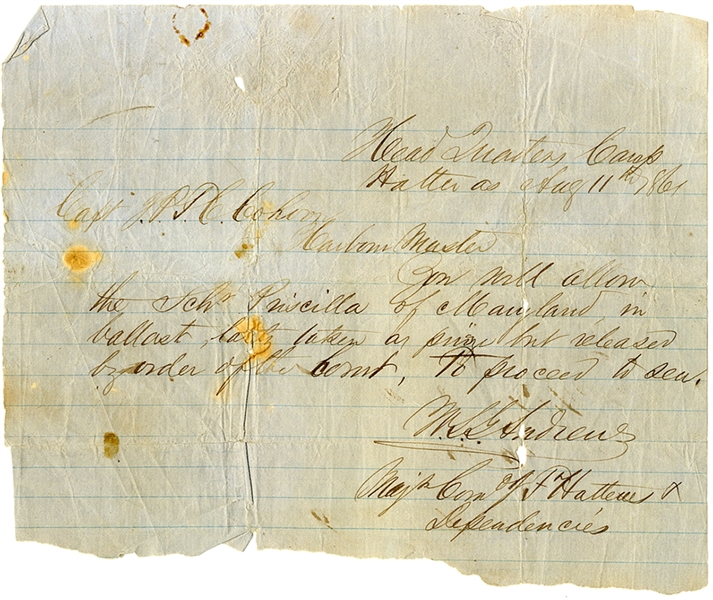 Head Quarters Camp
Hatteras Aug 11th 1861
Capt J.P.T.C.
Harbour Master
You will allow
the Schr Priscilla of Maryland in
ballast, taken as prize but released
by order of the Court, to proceed to sea.
W.S.G Andrews
Majr Com'd'g F Hatteras &
Dependencies